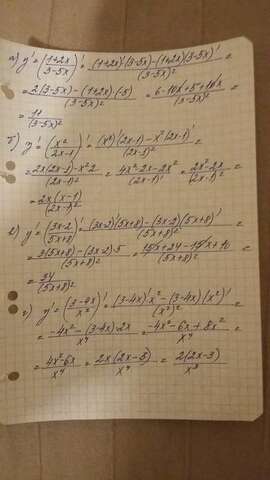 а) y' = (1+2x / 3-5x)' = (1+2x)'(3-5x)-(1+2x)(3-5x)' / (3-5x)² =
= 2(3-5x)-(1+2x)·(-5) / (3-5x)² = 6-10x+5+10x / (3-5x)² =
= 11 / (3-5x)²
б) y' = (x² / 2x-1)' = (x²)'(2x-1)-x²(2x-1)' / (2x-1)² =
= 2x(2x-1)-x²·2 / (2x-1)² = 4x²-2x-2x² / (2x-1)² = 2x²-2x / (2x-1)² =
= 2x(x-1) / (2x-1)²
в) y' = (3x-2 / 5x+8)' = (3x-2)'(5x+8)-(3x-2)(5x+8)' / (5x+8)² =
= 3(5x+8)-(3x-2)·5 / (5x+8)² = 15x+24-15x+10 / (5x+8)² =
= 34 / (5x+8)²
г) y' = (3-4x / x²)' = (3-4x)'x²-(3-4x)(x²)' / (x²)² =
= -4x²-(3-4x)·2x / x⁴ = -4x²-6x+8x² / x⁴ =
= 4x²-6x / x⁴ = 2x(2x-3) / x⁴ = 2(2x-3) / x³